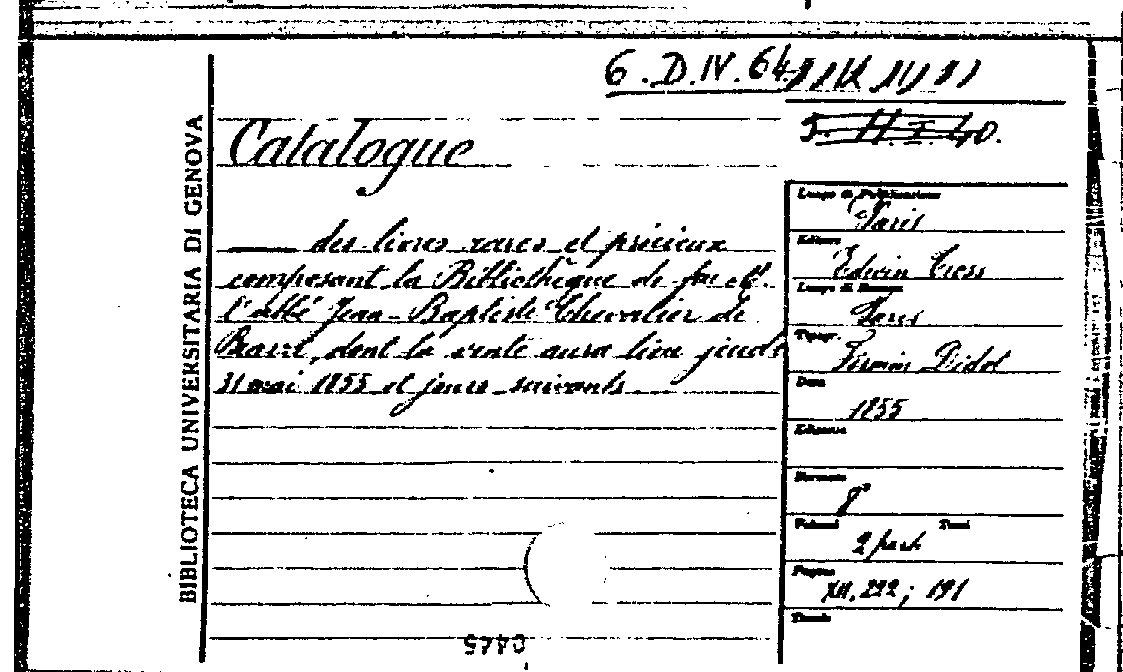 6.D.IV.64
5.H.I.40.
BIBLIOTECA UNIVERSITARIA DI GENOVA
Catalogue
— des livres rares et précieux
composant la Bibliothèque de feu M.
l'abbé Jean-Baptiste Chevalier de
dont la vente aura lieu jeudi
31 mai 1855 et jours suivants.
Luogo di Pubblicazione
Paris
Editore
Edwin Tross
Luogo di Stampa
Paris
Tipogr.
Firmin Didot
Data
1855
Edizione
Formato
8°
Volumi Tomi
2 part.
Pagine
XII, 222; 191
Tavole
0445